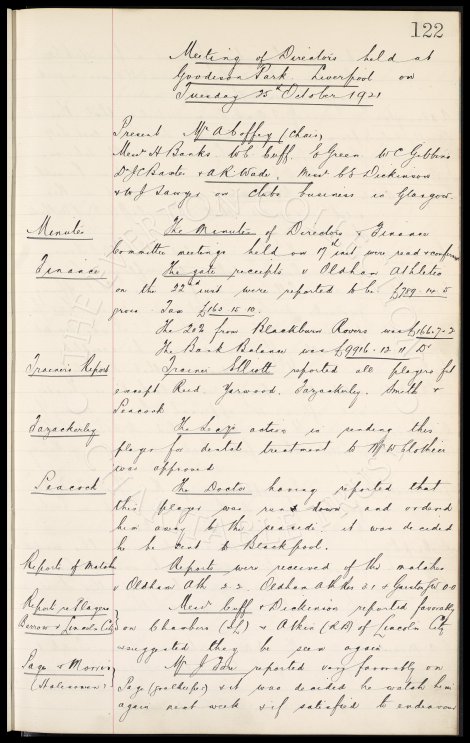 122
Meeting of Directors held at
Goodison Park, Liverpool on
Tuesday 25th October 1921
Present Mr A Coffey (Chair)
Messrs H Banks W.C. Cuff. E Green W C Gibbins
Dr J C Baxter & A R Wade. Messrs C E Dickinson
& W J Sawyer on Clubs business in Glasgow.
Minutes The Minutes of Directors & Finance
Committee meetings held on 17th inst were read & confirmed
Finance The gate receipts v Oldham Athletic
on the 22nd inst were reported to be £789-14-5
gross. Tax £163 15 10.
The 20% from Blackburn Rovers was £166.7-2
The Bank Balance was £9916-12-11 Dr
Trainers Report Trainer Elliott reported all players fit
except Reid Yarwood, Fazackerley, Smith &
Peacock
Fazackerley The Secy's action in sending this
player for dental treatment to Mr W Clothier
was approved
Peacock The Doctor having reported that
this player was run down and ordered
him away to the seaside it was decided
he be sent to Blackpool.
Reports of Matches Reports were received of the matches
v Oldham Ath 2 2. Oldham Ath Res 3 1 & Garston 0.0
Report re Players Messrs Cuff & Dickinson reported favorably
Barrow & Lincoln City on Chambers (I.L) & Atkin (R.B) of Lincoln City
& suggested they be seen again.
Page & Morris Mr J reported very favorably on
Page (goalkeeper) & it was decided he watch him
again next week & if satisfied to endeavour